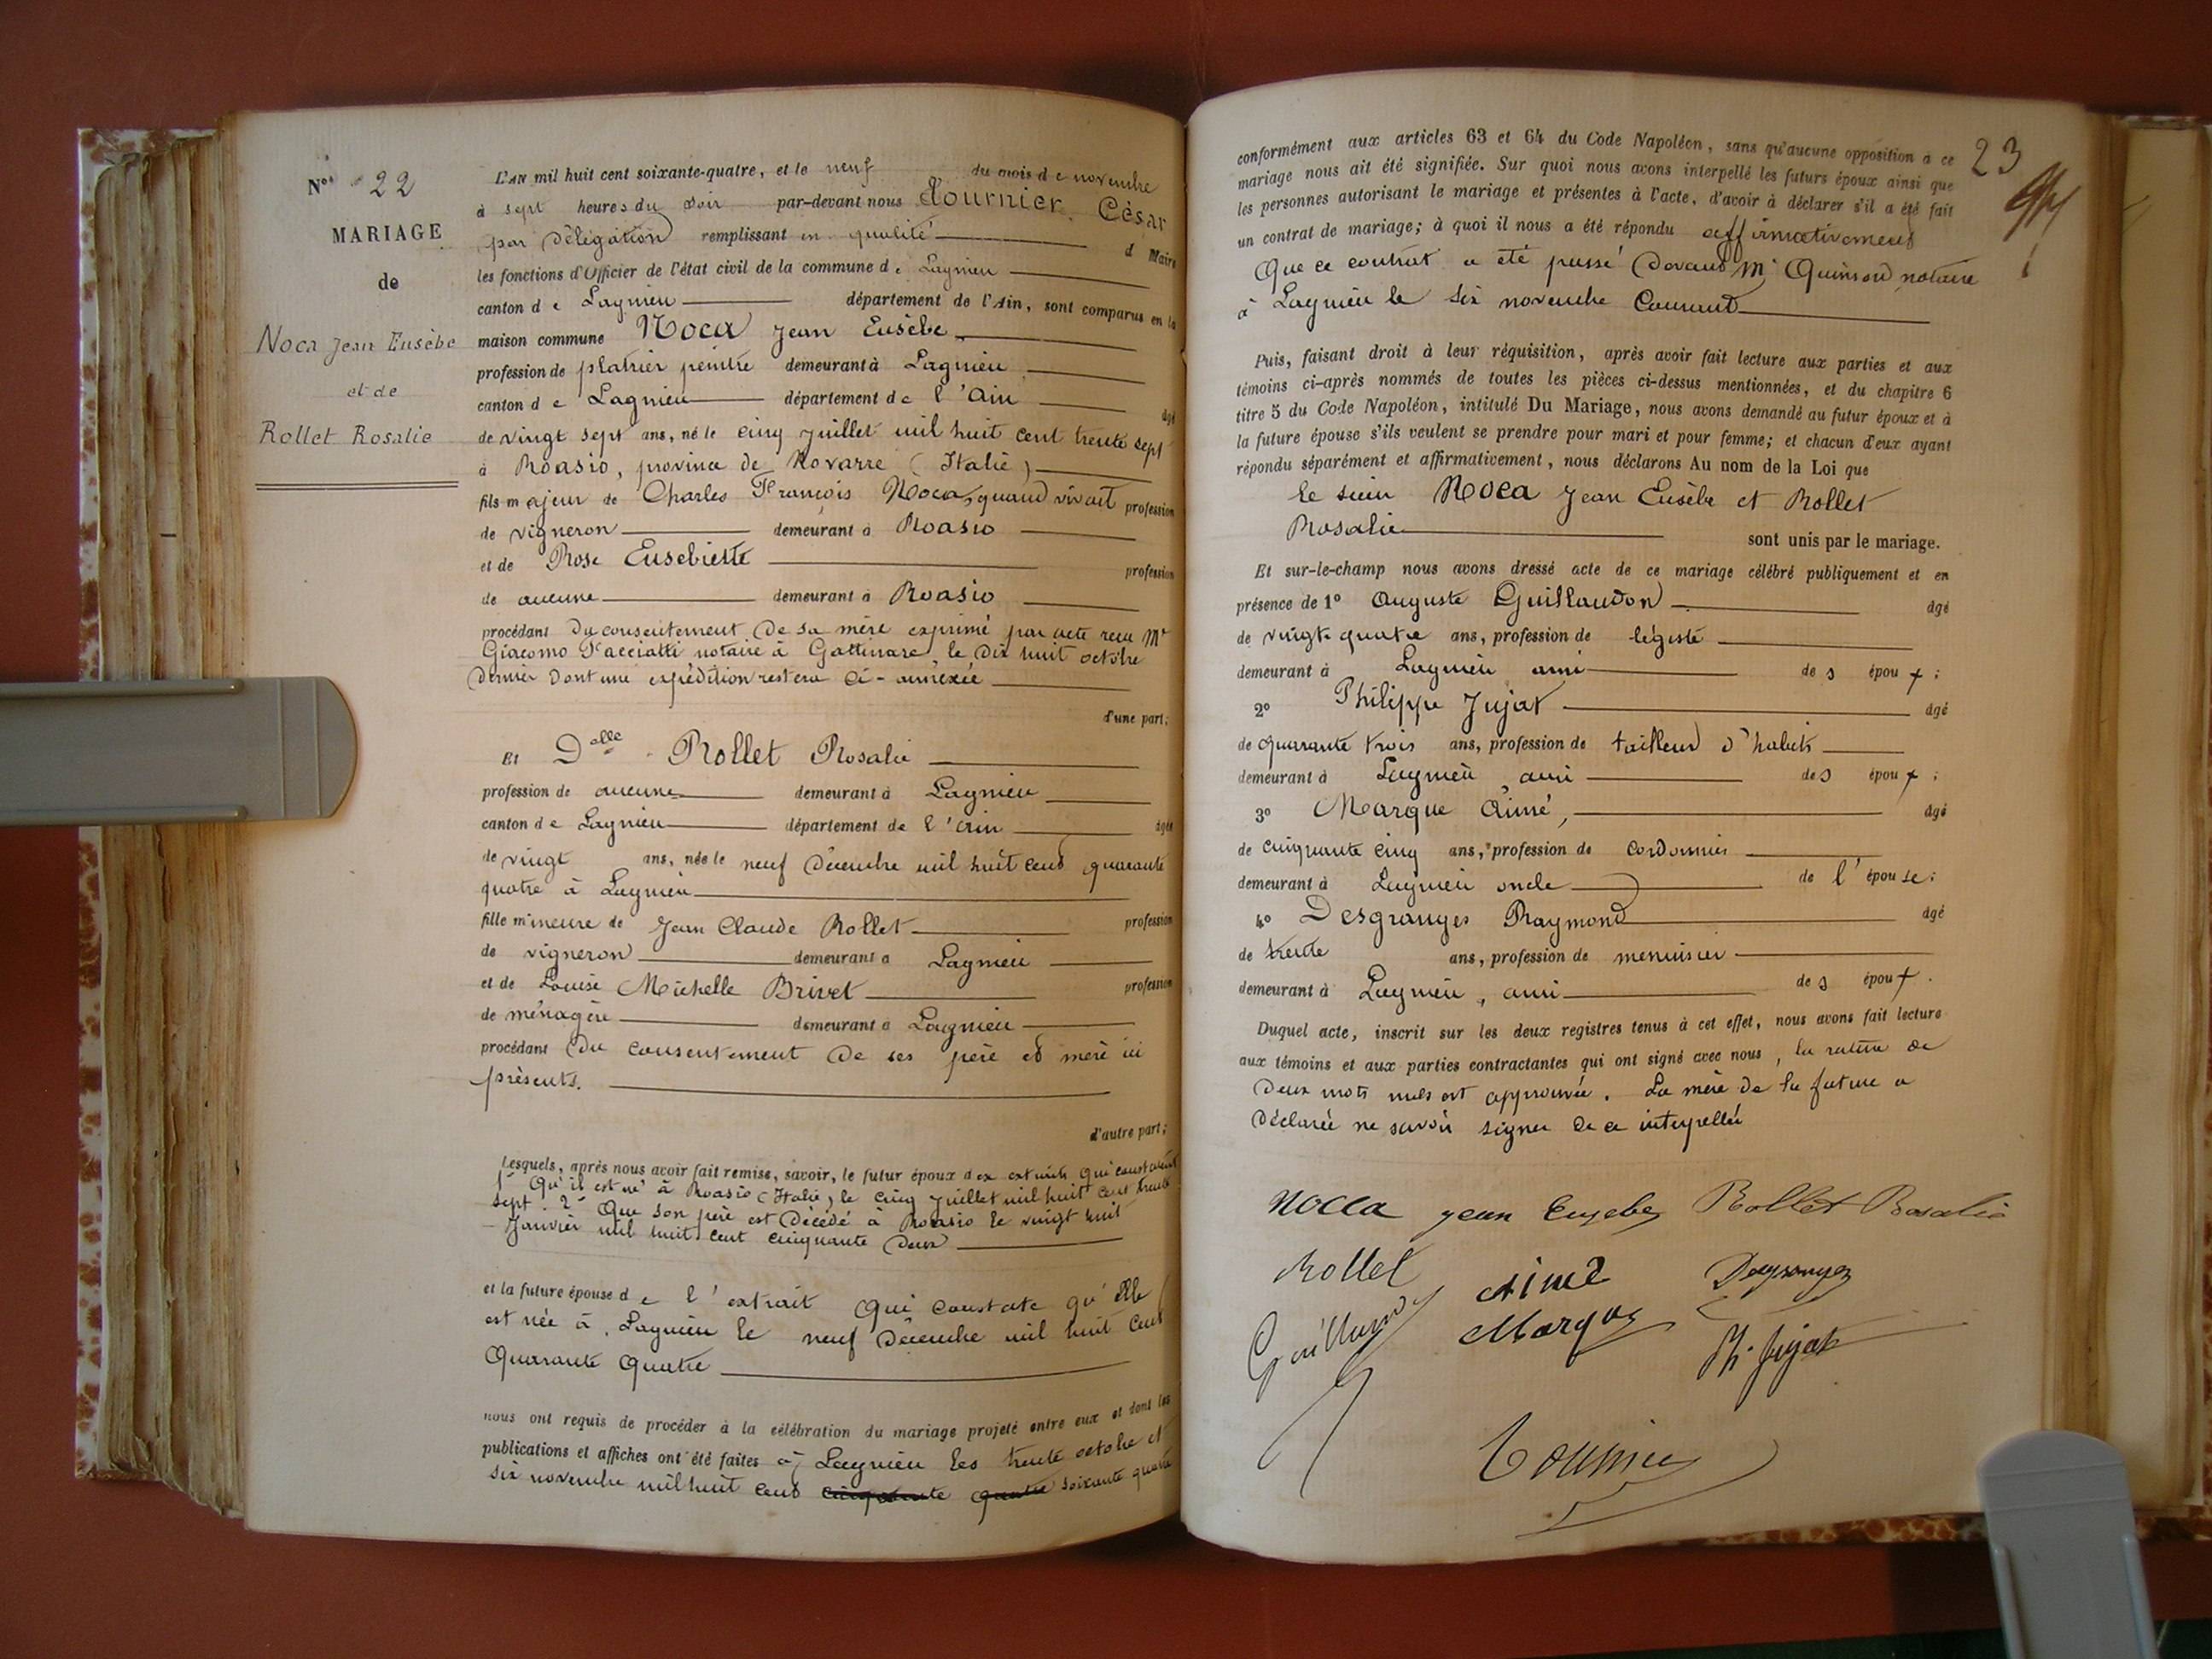 N° 22
MARIAGE
de
Noca Jean Eusèbe
et de
Rollet Rosalie
L'AN mil huit cent soixante-quatre, et le neuf du mois de novembre
à sept heures du soir par-devant nous Tournier César
par délégation remplissant en qualité d Maire
les fonctions d'Officier de l'état civil de la commune de Lagnieu
canton de Lagnieu département de l'Ain, sont comparus en la
maison commune Noca Jean Eusèbe
profession de platrier peintre demeurant à Lagnieu
canton de Lagnieu département de l'Ain âgé
de vingt sept ans, né le cinq Juillet mil huit cent trente sept
à Roasio, province de Novarre (Italie)
fils majeur de Charles François Noca, quand vivait profession
de vigneron demeurant à Roasio
et de Rose Eusebiette profession
de aucune demeurant à Roasio
procédant du consentement de sa mère exprimé par acte recu Mr
Giacomo notaire à Gattinare le dix huit octobre
dernier dont une expédition restera ci-annexée
d'une part;
Et Delle Rollet Rosalie
profession de aucune demeurant à Lagnieu
canton de Lagnieu département de l'Ain âgée
de vingt ans, née le neuf Décembre mil huit cent quarante
quatre à Lagnieu
fille mineure de Jean Claude Rollet profession
de vigneron demeurant à Lagnieu
et de Louise Michelle Brivet profession
de ménagère demeurant à Lagnieu
procédant du consentement de ses père et mère ici
présents.
d'autre part;
Lesquels, après nous avoir fait remise, savoir, le futur époux des extraits qui constatent
1° Qu'il est né à Roasio (Italie) le cinq Juillet mil huit cent trente
sept. 2° Que son père est décédé à Roasio le vingt huit
Janvier mil huit cent cinquante deux
et la future épouse de l'extrait qui constate qu'elle
est née à Lagnieu le neuf Décembre mil huit cent
quarante quatre
nous ont requis de procéder à la célébration du mariage projeté entre eux et dont les
publications et affiches ont été faites à Lagnieu les trente octobre et
six novembre mil huit cent cinquante quatre soixante quatre
23
conformément aux articles 63 et 64 du Code Napoléon, sans qu'aucune opposition à ce
mariage nous ait été signifiée. Sur quoi nous avons interpellé les futurs époux ainsi que
les personnes autorisant le mariage et présentes à l'acte, d'avoir à déclarer s'il a été fait
un contrat de mariage; à quoi il nous a été répondu affirmativement
Que ce contrat a été passé devant Me Quinson notaire
à Lagnieu le six novembre courant
Puis, faisant droit à leur réquisition, après avoir fait lecture aux parties et aux
témoins ci-après nommés de toutes les pièces ci-dessus mentionnées, et du chapitre 6
titre 5 du Code Napoléon, intitulé Du Mariage, nous avons demandé au futur époux et à
la future épouse s'ils veulent se prendre pour mari et pour femme; et chacun d'eux ayant
répondu séparément et affirmativement, nous déclarons Au nom de la Loi que
le sieur Noca Jean Eusèbe et Rollet
Rosalie
sont unis par le mariage.
Et sur-le-champ nous avons dressé acte de ce mariage célébré publiquement et en
présence de 1° Auguste Guillaudon âgé
de vingt quatre ans, profession de légiste
demeurant à Lagnieu ami des époux;
2° Philippe Jujat âgé
de quarante trois ans, profession de tailleur d'habits
demeurant à Lagnieu, ami des époux;
3° Marque Aimé, âgé
de cinquante cinq ans, profession de cordonnier
demeurant à Lagnieu oncle de l'épouse;
4° Desgranges Raymond âgé
de trente ans, profession de menuisier
demeurant à Lagnieu, ami des époux.
Duquel acte, inscrit sur les deux registres tenus à cet effet, nous avons fait lecture
aux témoins et aux parties contractantes qui ont signé avec nous, la rature de
deux mots nuls est approuvée. La mère de la future a
déclarée ne savoir signer de ce interpellée
Nocca jean Eusebe Rollet Rosalie
Rollet Aimé Desgranges
Guillaudon Marque Ph. Jujat
Tournier